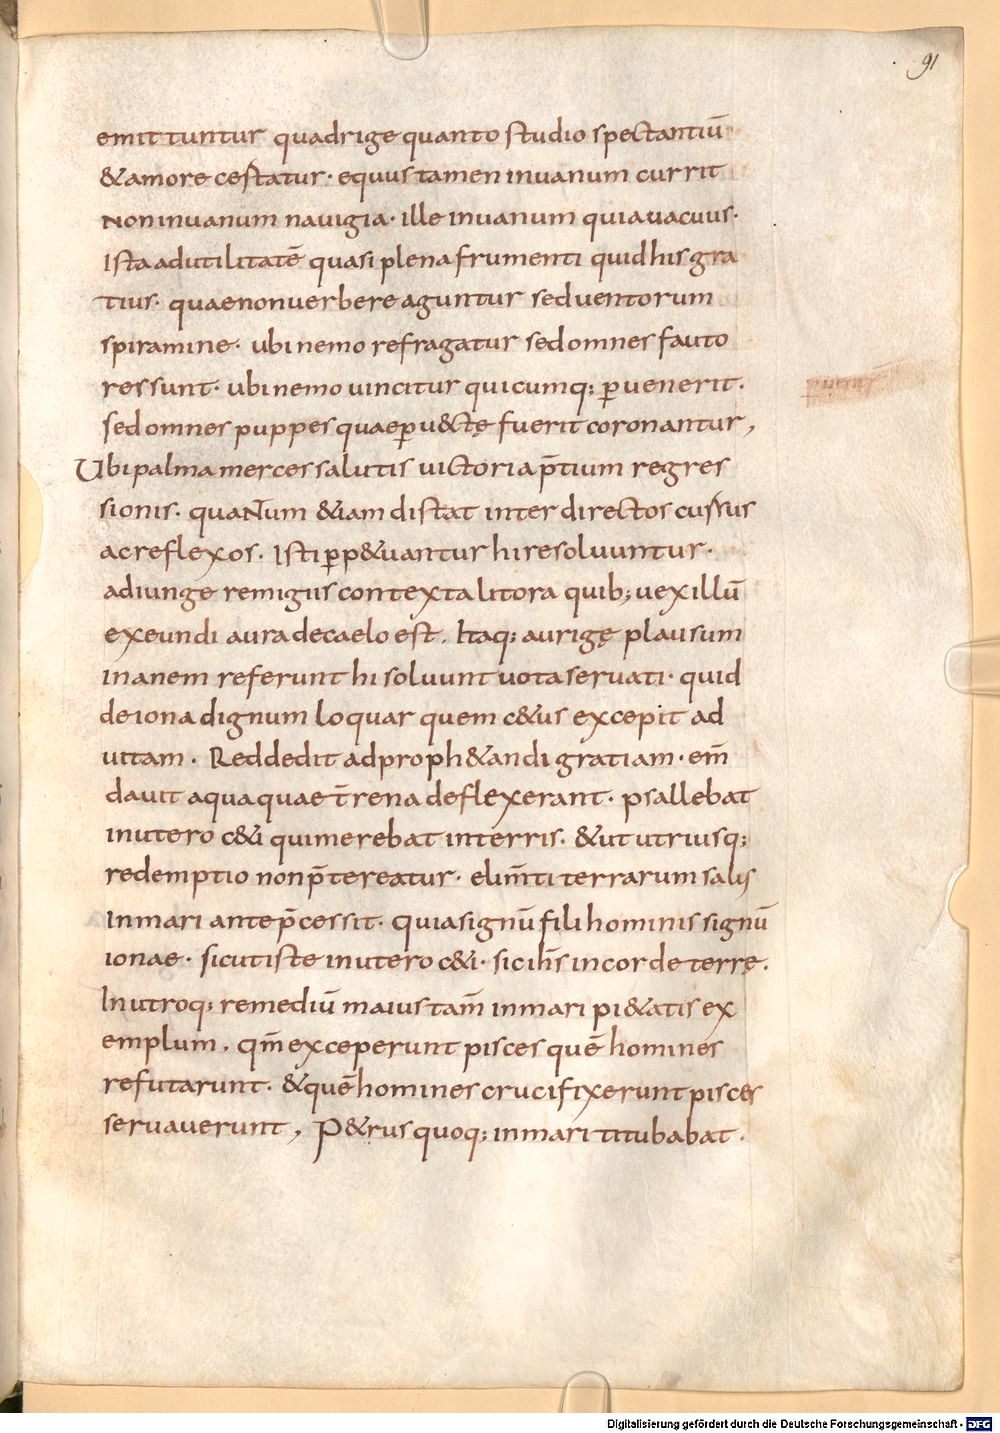 91
emittuntur quadrige quanto studio spectantiū
& amore cestatur· equus tamen inuanum currit
Non inuanum nauigia· ille inuanum quia uacuus·
Ista ad utilitatē quasi plena frumenti quid his gra
tius· quae non uerbere aguntur sed uentorum
spiramine· ubi nemo refragatur sed omnes fauto
res sunt· ubi nemo uincitur quicumq; ꝑuenerit·
sed omnes puppes quae ꝑu&ctę fuerit coronantur,
Ubi palma merces salutis uictoria p̄tium regres
sionis· quaNtum &iam distat inter directos cussus
ac reflexos· Isti ꝑp&uantur hi resoluuntur·
adiunge remigiis contexta litora quib; uexillū
exeundi aura de caelo est. Itaq; aurigę plausum
inanem referunt hi soluunt uota seruati· quid
de iona dignum loquar quem c&us excepit ad
uitam· Reddedit ad proph&andi gratiam· em̄
dauit aqua quae t̄rena deflexerant· psallebat
in utero c&i qui merebat in terris· & ut utriusq;
redemptio non p̄tereatur· elim̄ti terrarum salis
In mari ante p̄cessit· quia signū fili hominis signū
ionae· sicut iste in utero c&i· sic ih̄s in corde terrę·
In utroq; remediū maius tam̄ in mari pi&atis ex
emplum· qm̄ exceperunt pisces quē homines
refutarunt· & quē homines crucifixerunt pisces
seruauerunt, P&rus quoq; in mari titubabat·
Digitalisierung gefördert durch die Deutsche Forschungsgemeinschaft · DFG